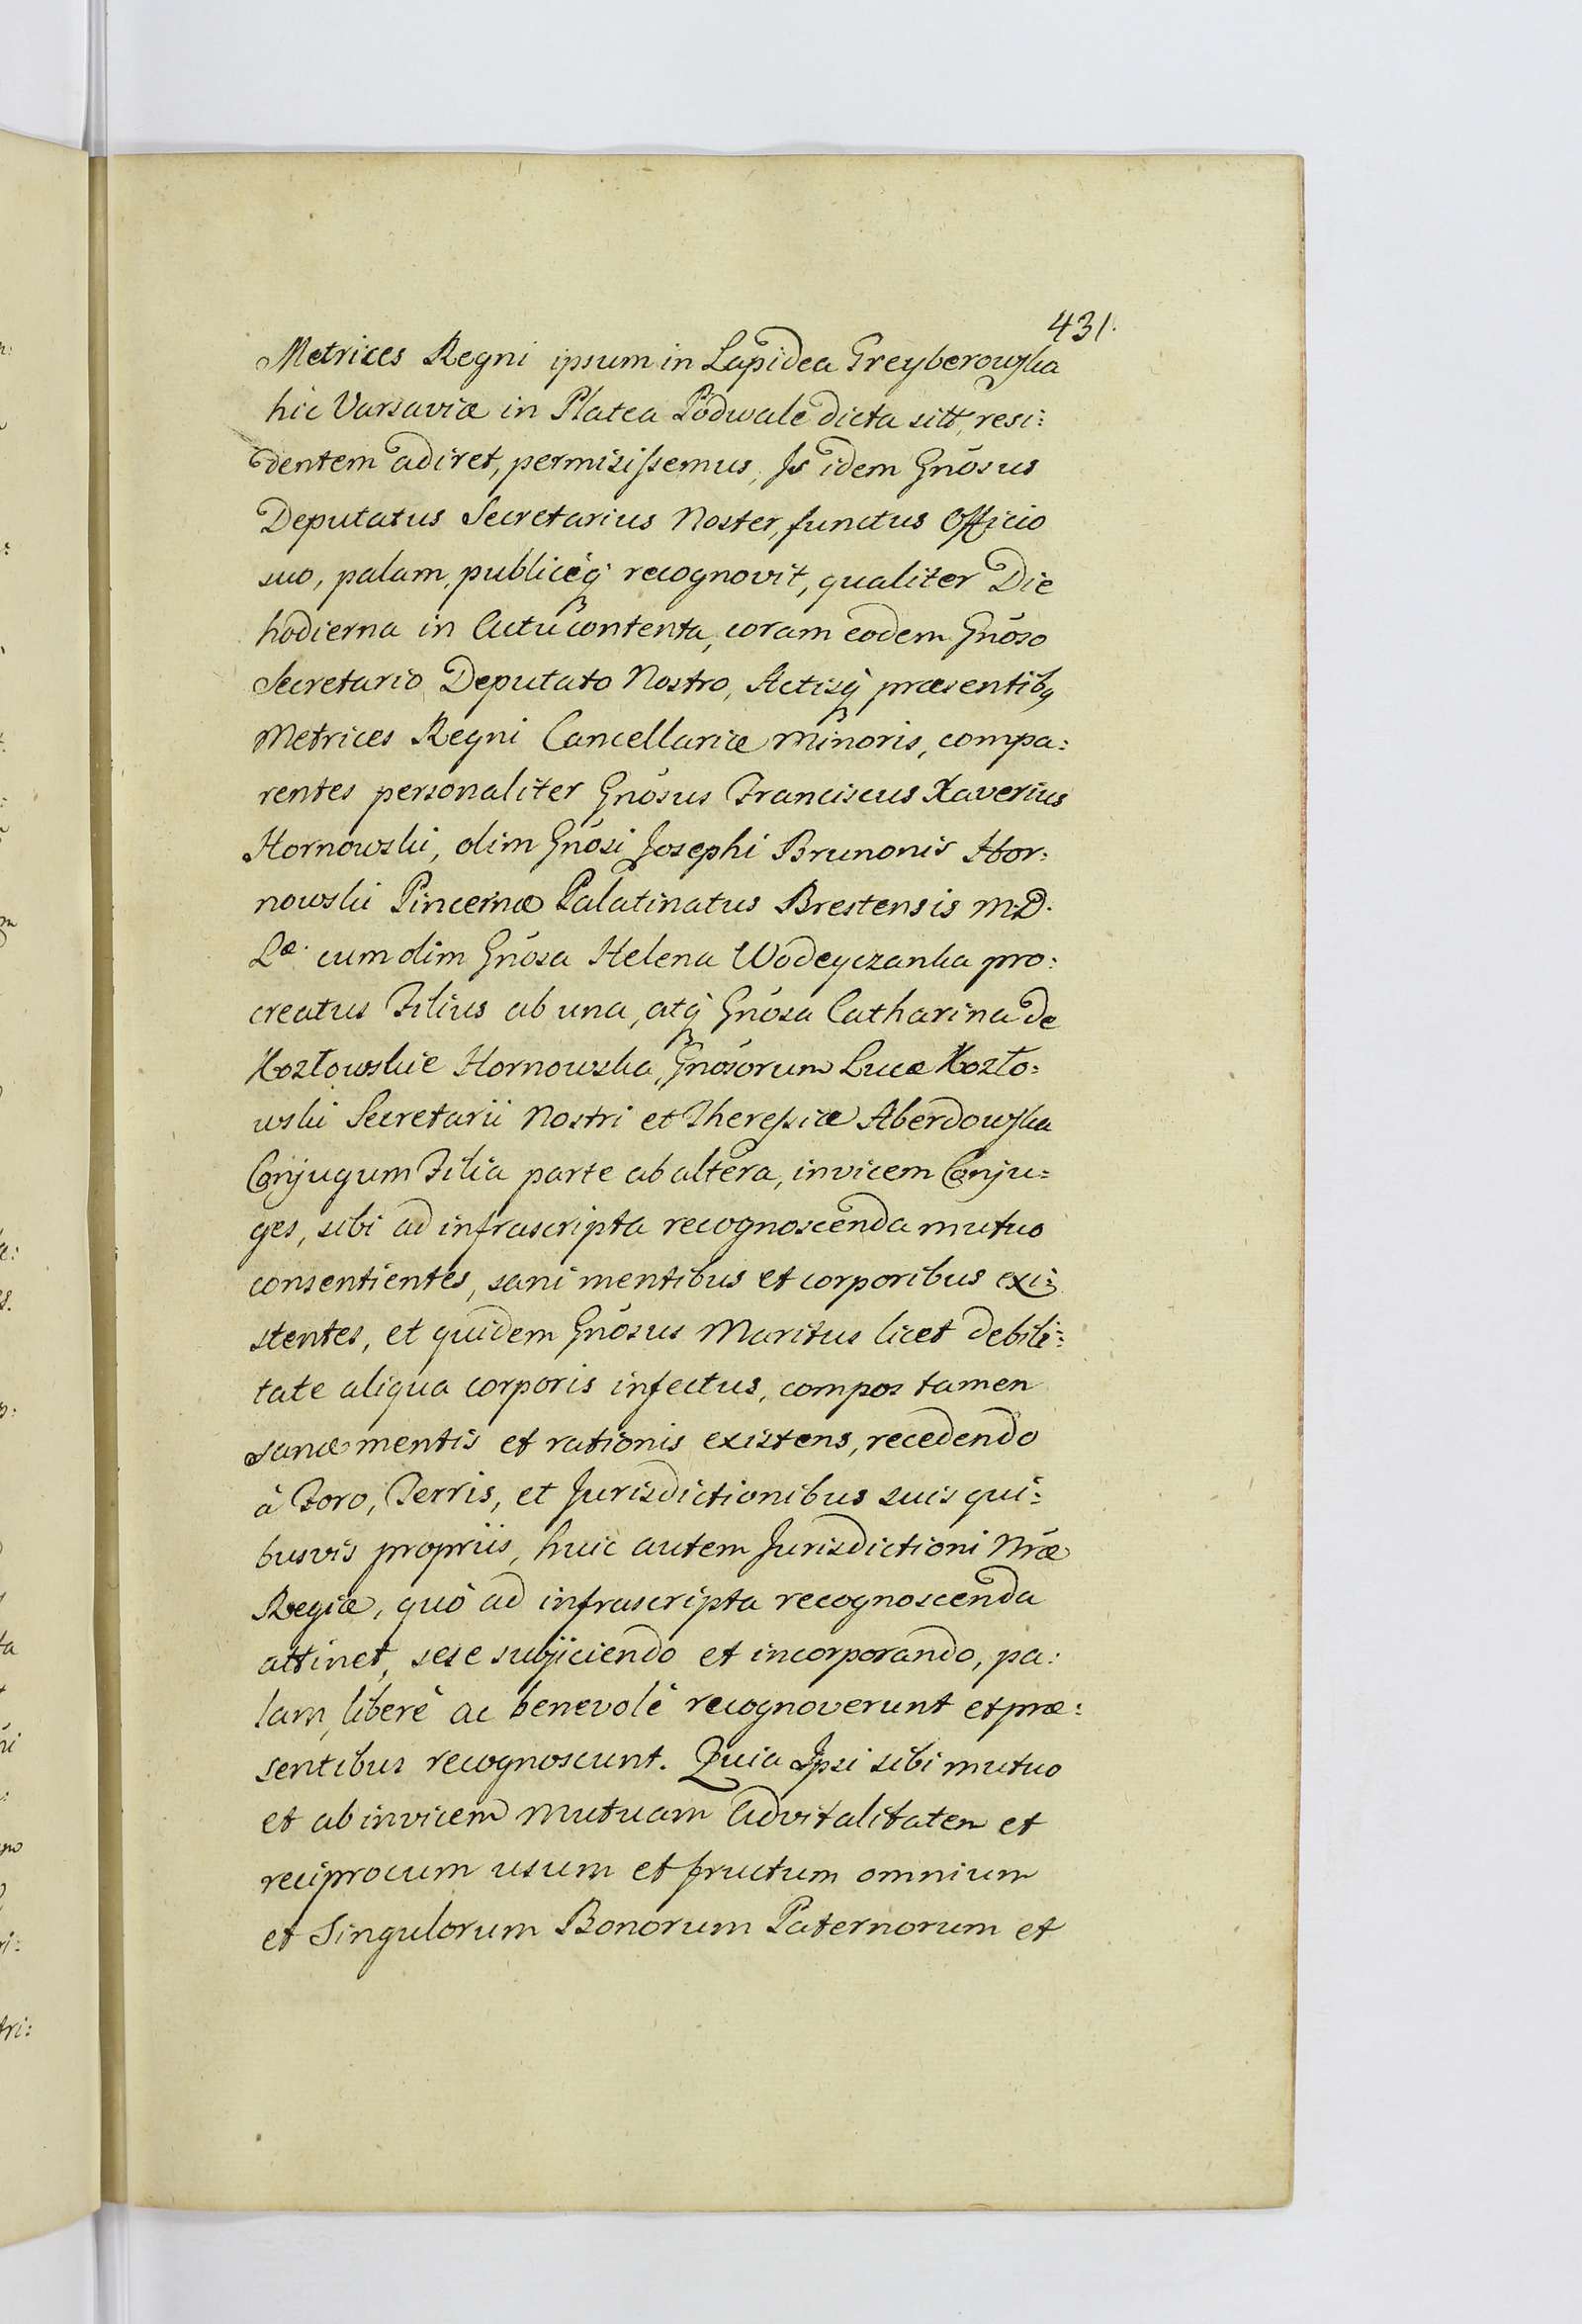 431.
Metrices Regni ipsum in Lapidea Greyberowska
hic Varsaviæ in Platea Podwale dicta sitt, resi:
dentem adiret, permisissemus, Is idem Gnōsus
Deputatus Secretarius Noster, functus Officio
suo, palam, publicèq́ recognovit, qualiter Die
hodierna in Actu contenta, coram eodem Gnōso
Secretario Deputato Nostro, Actisq́ præsentibq
Metrices Regni Cancellariæ Minoris, compa:
rentes personaliter Gnōsus Franciscus Xaverius
Hornowski, olim Gnōsi Josephi Brunonis Hor:
nowski Pincernæ Palatinatus Brestensis M.D.
Læ. cum olim Gnōsa Helena Wodeyczanka pro:
creatus Filius ab una, atq́ Gnōsa Catharina de
Kozłowskie Hornowska, Gnōsorum Lucæ Kozło:
wski Secretarii Nostri et Theressiæ Aberdowska
Conjugum Filia parte ab altera, invicem Conju=
ges, sibi ad infrascripta recognoscenda mutuo
consentientes, sani mentibus et corporibus exi:
stentes, et quidem Gnōsus Maritus licet debili:
tate aliqua corporis infectus, compos tamen
sanæ mentis et rationis existens, recedendo
à Foro, Terris, et Jurisdictionibus suis qui:
busvis propriis, huic autem Jurisdictioni Nræ
Regiæ, quò ad infrascripta recognoscenda
attinet, sese subjiciendo et incorporando, pa:
lam, liberè ac benevolè recognoverunt et præ:
sentibus recognoscunt. Quia Ipsi sibi mutuo
et ab invicem mutuam Advitalitatem et
reciprocum usum et fructum omnium
et Singulorum Bonorum Paternorum et